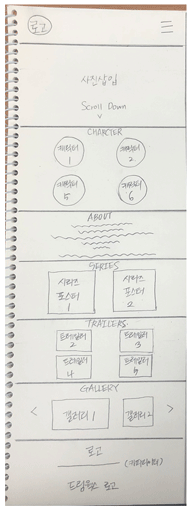 로고
사진삽입
Scroll Down
v
CHARCTER
캐릭터 1
캐릭터 2
캐릭터 5
캐릭터 6
ABOUT
SERIES
시리즈 포스터 1
시리즈 포스터 2
TRAILERS
트레일러 2
트레일러 3
트레일러 4
트레일러 5
GALLERY
< 갤러리 1 갤러리 2 >
로고
드림웍스 로고